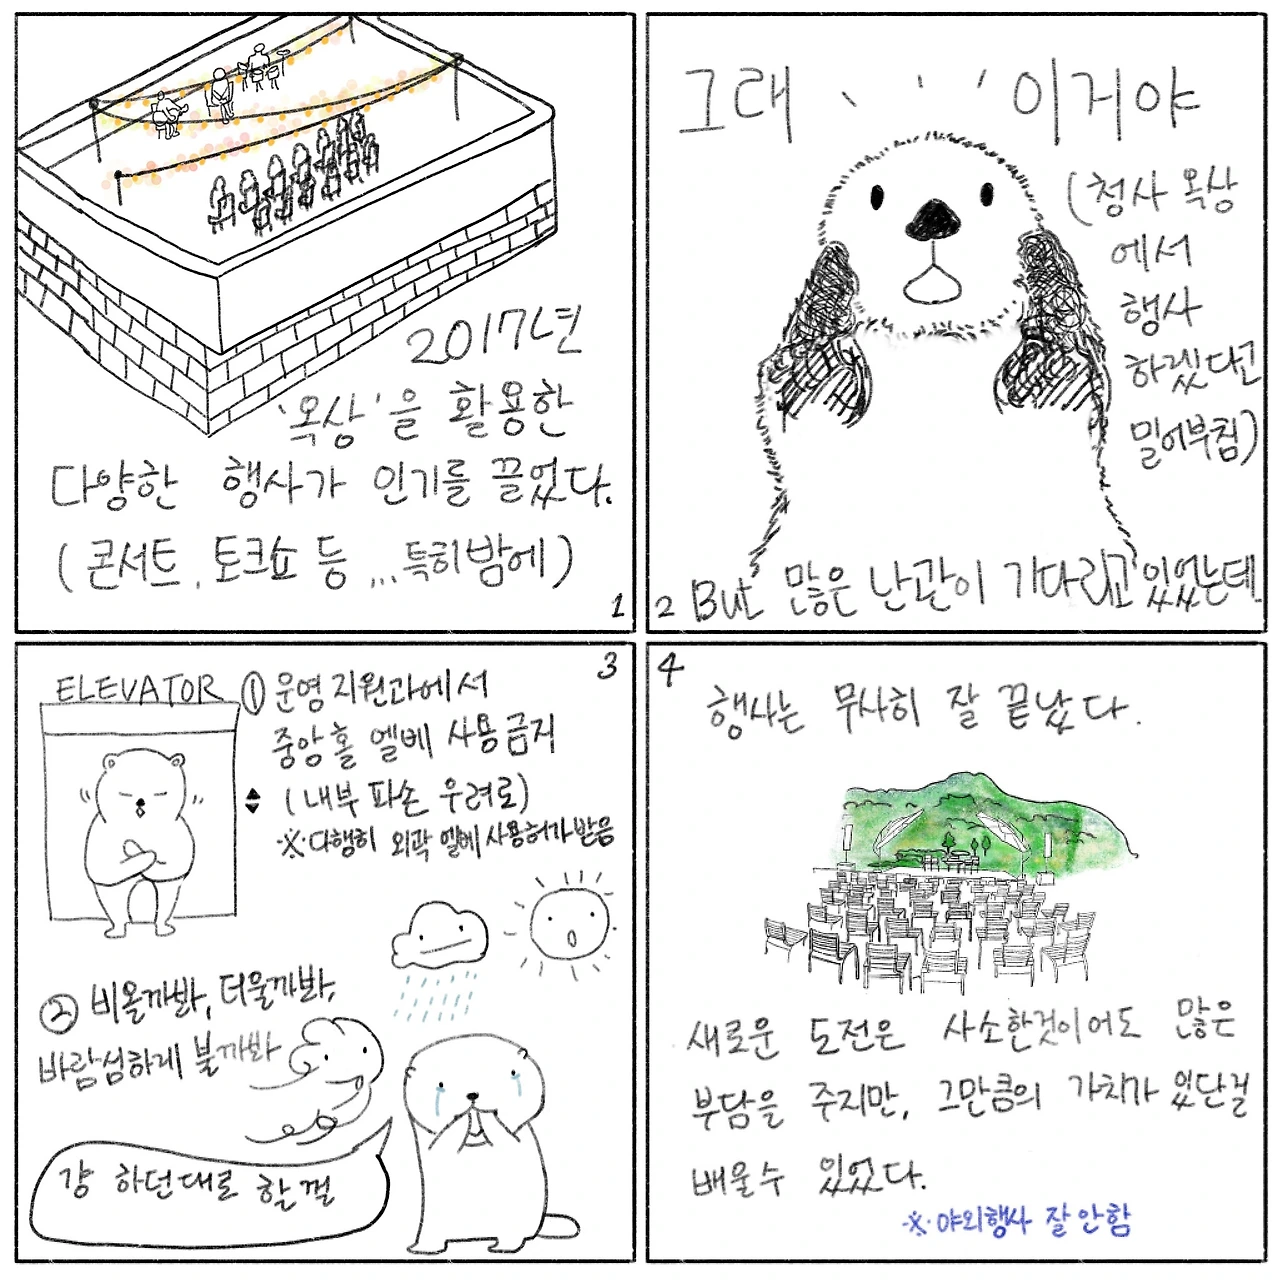 2017년
'옥상'을 활용한
다양한 행사가 인기를 끌었다.
(콘서트, 토크쇼 등 ... 특히밤에)
1
그래 、 ' ' 이거야
(청사 옥상
에서
행사
하겠다고
밀어부침)
2 But 많은 난관이 기다리고있었는데.
3
ELEVATOR
① 운영지원과에서
중앙홀 엘베 사용금지
(내부 파손 우려로)
※다행히 외곽 엘베 사용허가받음
② 비올까봐, 더울까봐,
바람심하게 불까봐
걍 하던대로 할껄
4
행사는 무사히 잘 끝났다.
새로운 도전은 사소한것이어도 많은
부담을 주지만, 그만큼의 가치가 있단걸
배울수 있었다.
※야외행사 잘 안함